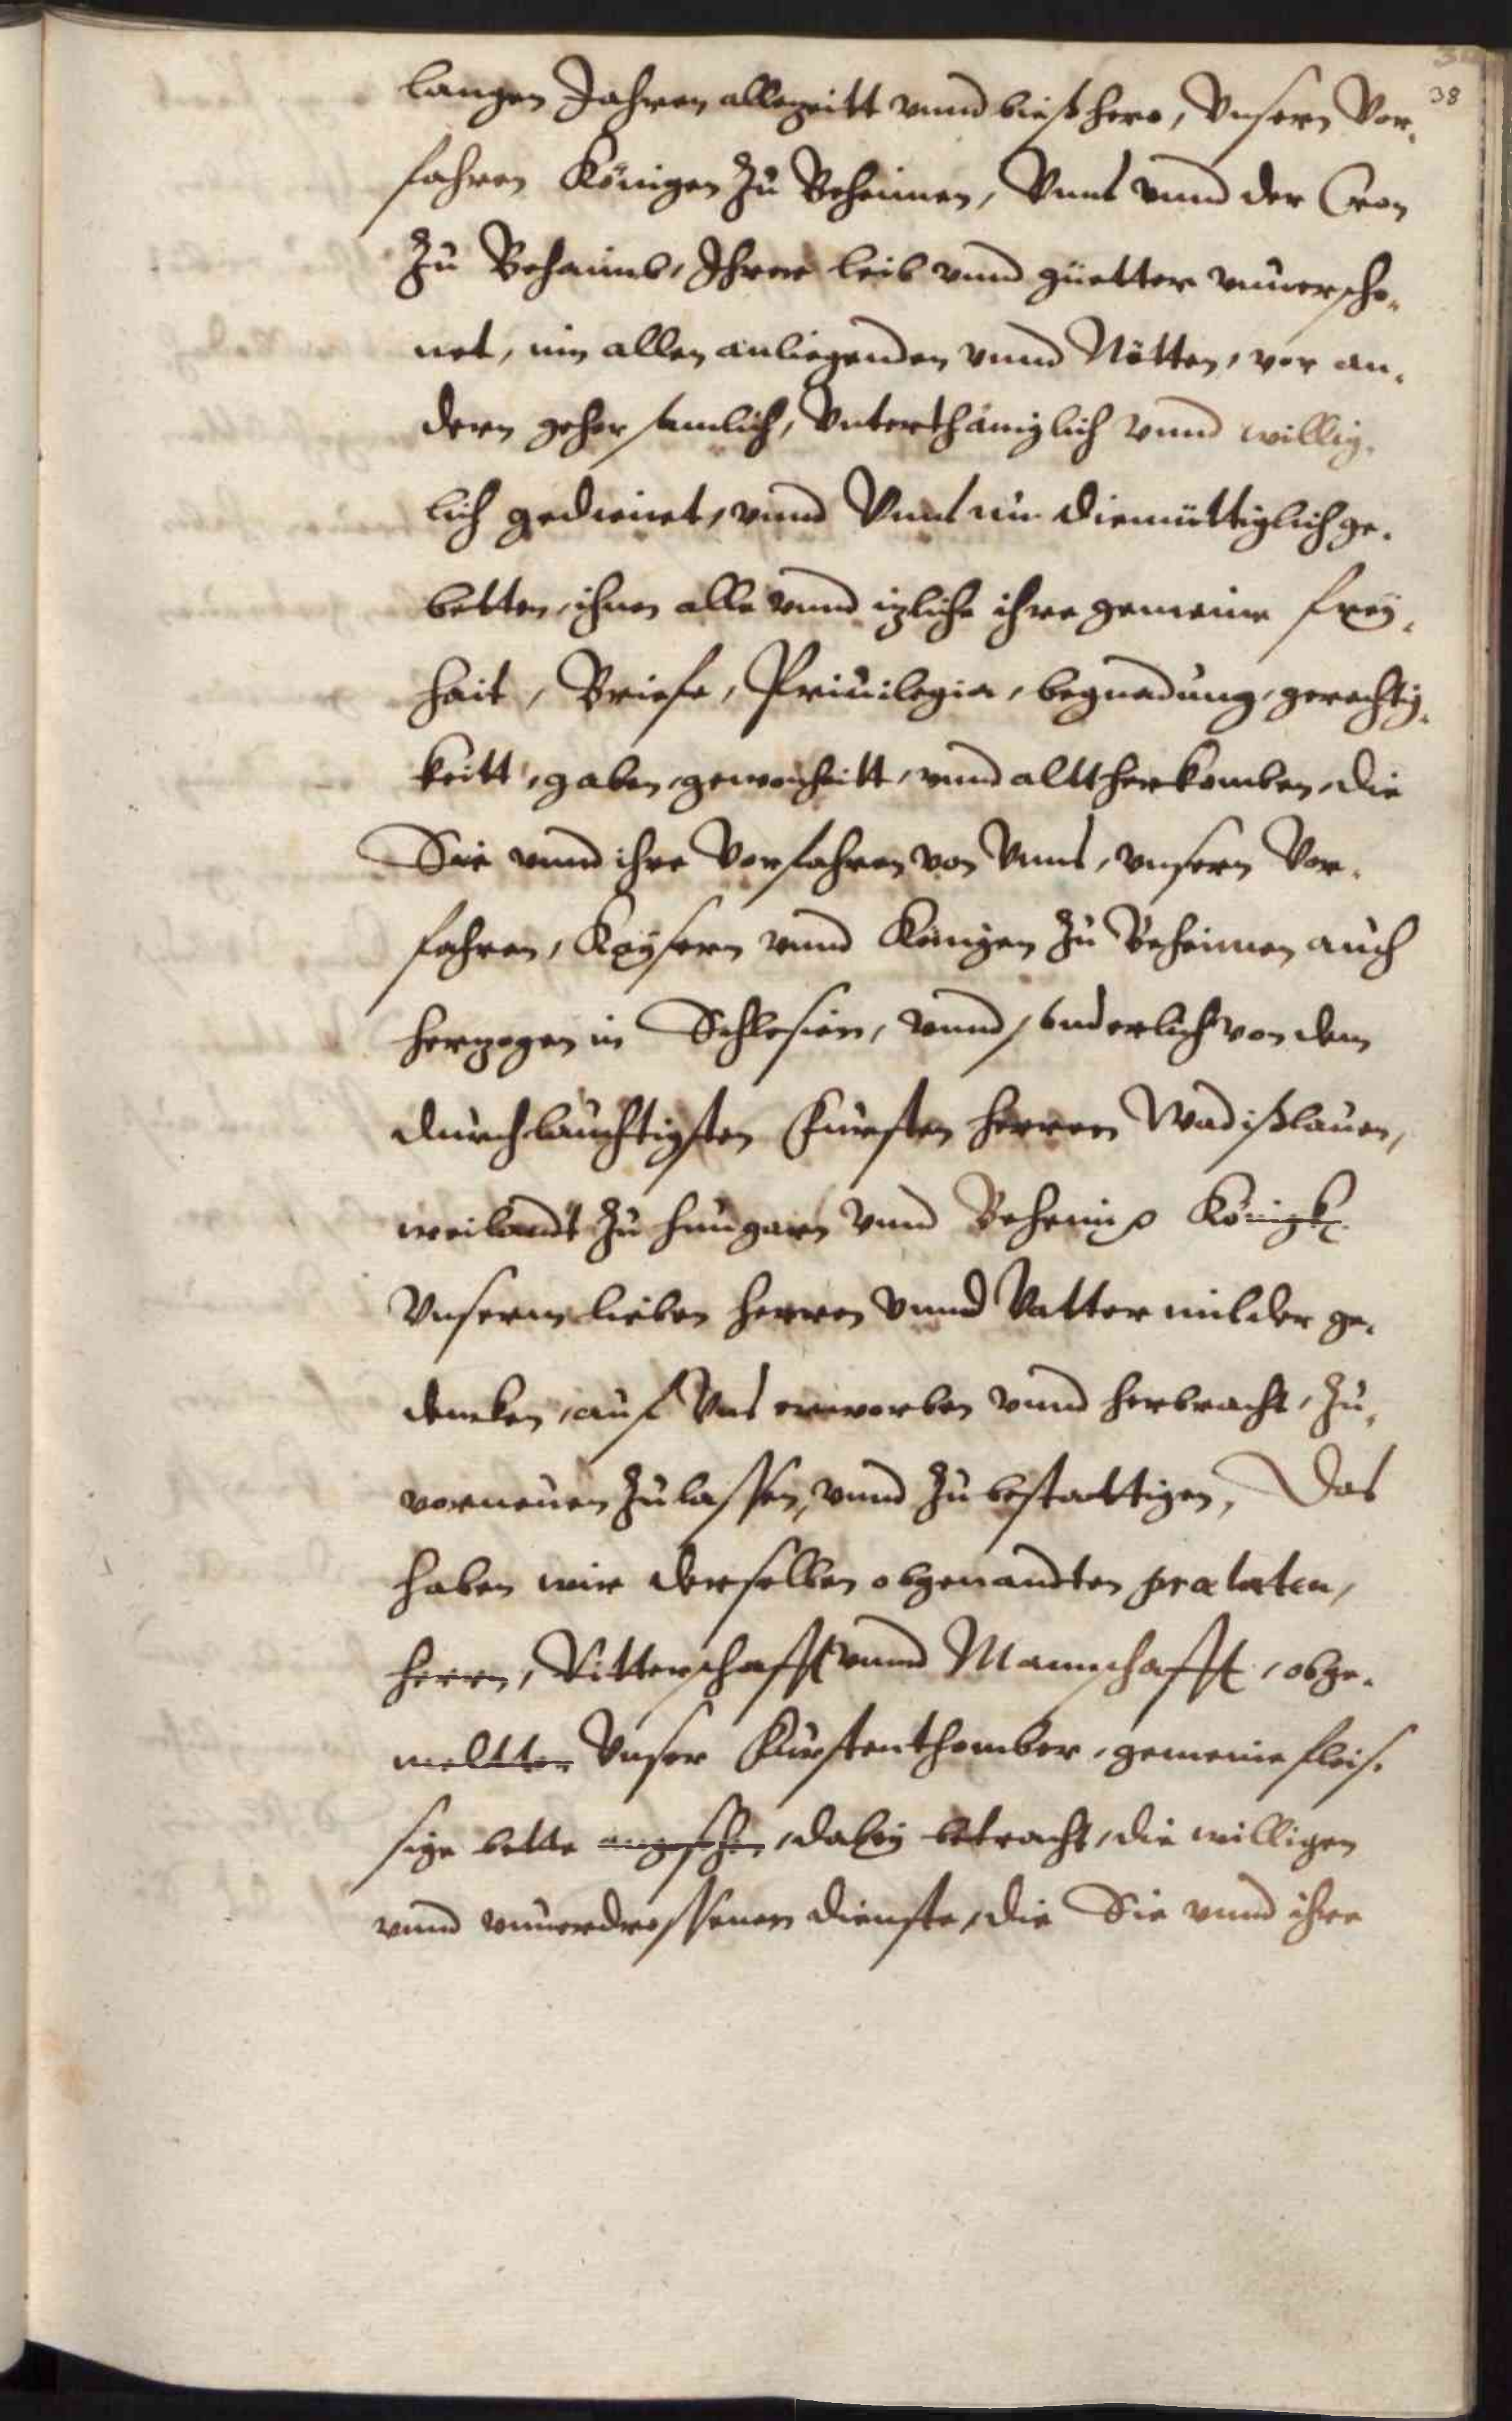 38
langen Jahren allezeitt vnnd bießhero, Vnsern Vor-
fahren Königen zu Beheimen, Vnns vnnd der Cron
zu Behaimb, Ihrer leib vnnd güetter vnuerscho-
net, inn allen anliegenden vnnd Nötten, vor an-
dern gehorsamlich, Vnterthäniglich vnnd willig-
lich gedienet, vnnd Vnns nun diemüttiglich ge-
betten, ihnen alle vnnd izliche ihre gemeine frey-
hait, Briefe, Priuilegia, begnadung, gerechtig-
keitt, gaben, gewonheitt, vnnd alltherkomben, die
Sie vnnd ihre Vorfahren von Vnns, vnsern Vor-
fahren, Kaysern vnnd Königen zu Beheimen auch
herzogen in Schlesien, vnnd sonderlich von dem
durchlauchtigsten Fürsten herren Wadißlauen,
weilandt zu hungarn vnnd Beheim p Königk
Vnserm lieben herren vnnd Vatter milder ge-
dencken, auf Vns erworben vnnd herbracht, zu-
vorneuen zulassen, vnnd zu bestattigen, Das
haben wir derselben obgenandten prælaten,
herrn, Ritterschafft vnnd Mannschafft, obge-
meltten Vnser Fürstenthomber, gemeine fleis-
sige bette angesehen, dabey betracht, die willigen
vnnd vnuerdrossenen dienste, die Sie vnnd ihre